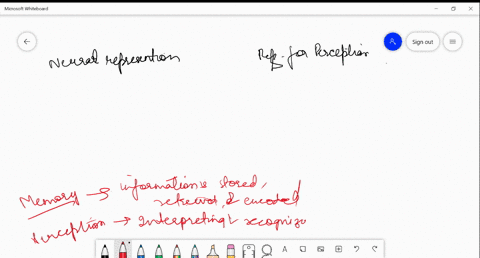 Microsoft Whiteboard
Sign out
Neural represention Rep. for Perception
Memory → information is stored,
retrieved, & encoded
Perception → Interpreting & recognizin